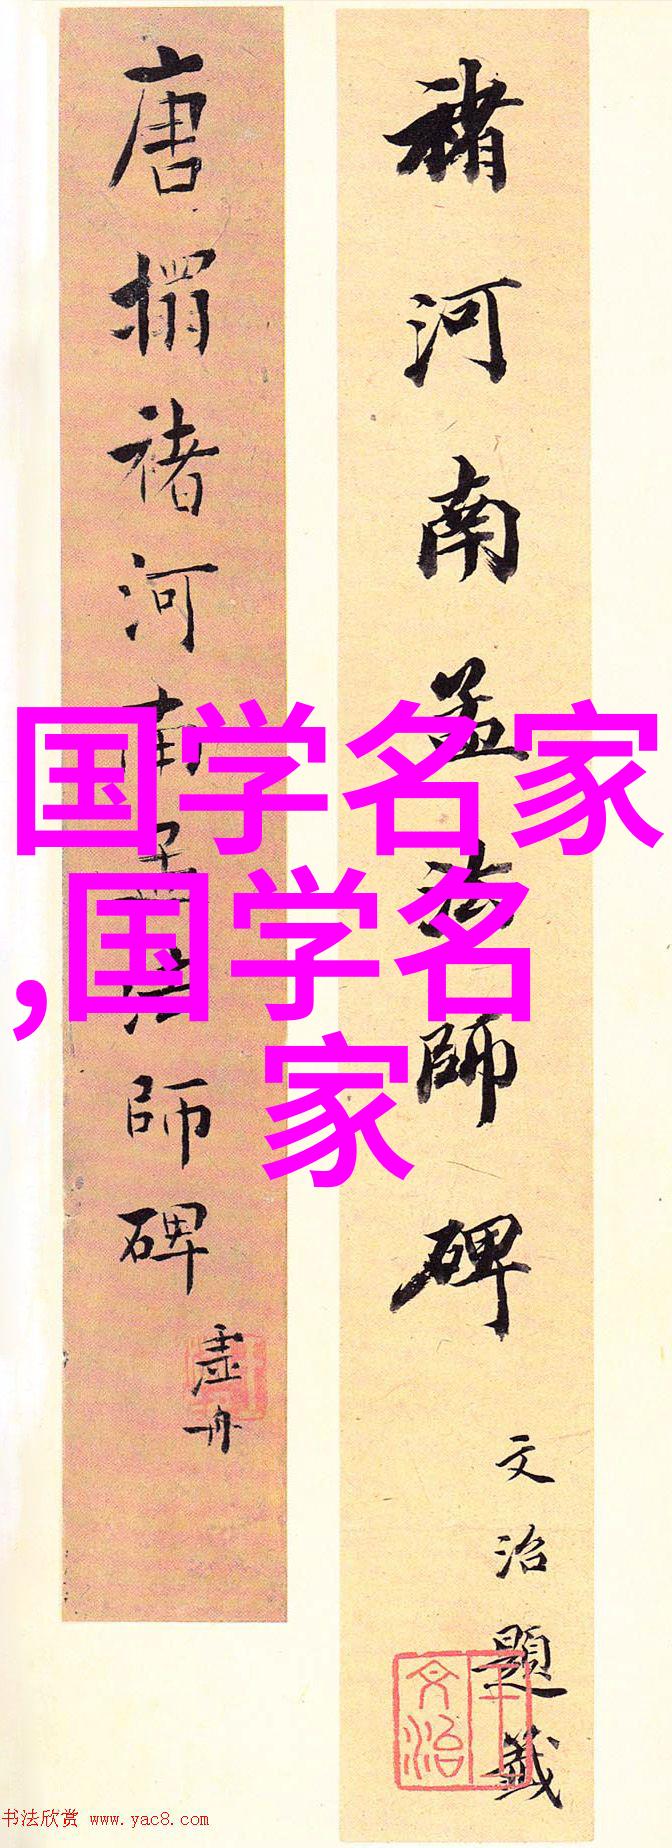 褚河南孟法師碑
文治題籤
王文治
唐搨褚河南孟法師碑
虛舟
国学名家
,国学名
家
书法欣赏 www.yac8.com